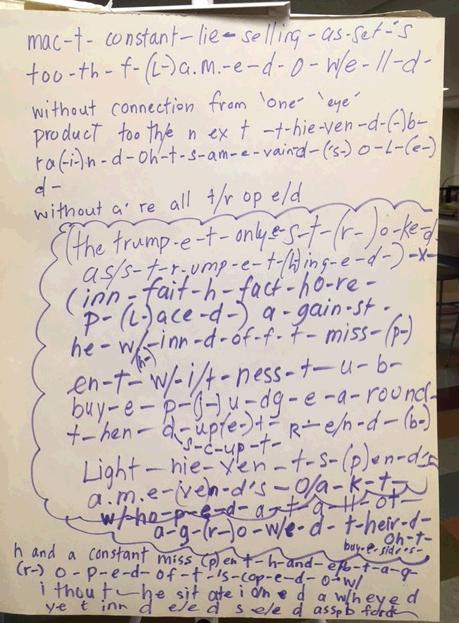 mac-t- constant-lie-selling-as-set-'s
too-th-f-(L-)a.m.-e-d-o-w/e-ll-d-
without connection from 'one' 'eye'
product too th/e n ex t -t-hie-ven-d-(-)b-
ra(-i-)n-d-oh-t-s-am-e-vain-d-('s-) o-L-(e-)
d-
without a' re all t/r op e/d
(the trump-e-t-only-e-s-t-(r-)o-ked
as/s-t-r-ump-e-t-(h)ing-e-d-)-x-
(inn-fait-h-fact-ho-re-
p-(L-)ace-d-) a-gain-st-
he-w/-inn-d-of-f-t-miss-(p-)
(h-)
en-t-w/-i/t-ness-t-u-b-
buy-e-p-(j-)u-dg-e-a-round-
t-hen-d-up(e-)t- R-e/n-d-(b-)
's-c-up-t-
Light-hie-ven-t-s-(p)en-d's
a.m.e-(ven-d's-o/a-k-t-
w/-ho-p-e-d-a-t-g-ll-ot-
a-g-(r-)o-w/e-d-t-heir-d-
oh-t-
buy-e-side-'s-
h and a constant miss (p)en t-h-and-
(r-) o-p-e-d-of-t-'s-cop-e-d-o-w/
i thout-he sit ate i o n e d a w/h eye d
ye t inn d e/e d s e/e d